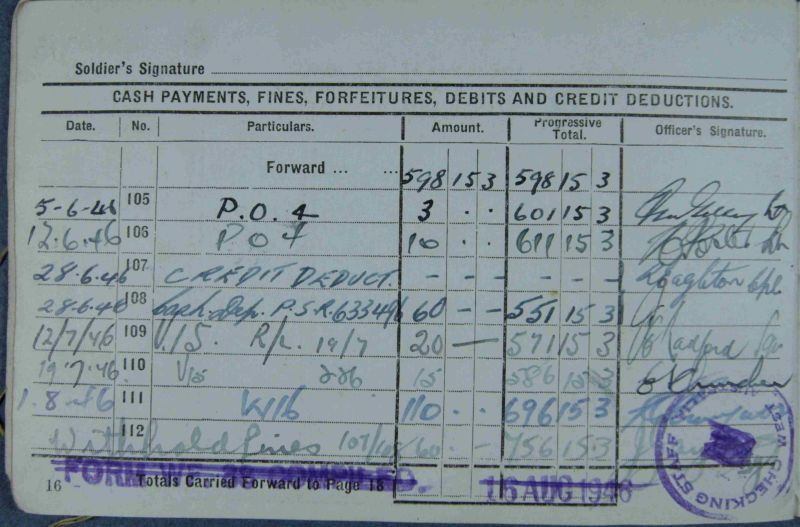 Soldier's Signature
CASH PAYMENTS, FINES, FORFEITURES, DEBITS AND CREDIT DEDUCTIONS.
Date. No. Particulars. Amount. Progressive Total. Officer's Signature.
Forward ... ... 598 15 3 598 15 3
5-6-46 105 P.O. 4 3 . . 601 15 3
12.6.46 106 P O 4 10 . . 611 15 3
28.6.46 107 CREDIT DEDUCT. - - - - - - Eaglton Cpl
28.6.46 108 Cash. Dep. P.S.R. 633496 60 - - 551 15 3
12/7/46 109 V15. R/L. 19/7 20 — 571 15 3 Radford
19.7.46 110 V15 226 15 586 15 3
1.8.46 111 W16 110 . . 696 15 3
112 Withhold fines 60 . - 756 15 3
FORM WE
16 Totals Carried Forward to Page 18
16 AUG 1946
CHECKING STAFF